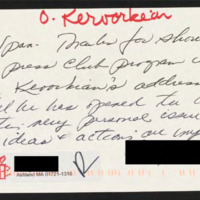 O. Kervorkian
Span. Thanks for show
press club program w
Kevorkian's address
he has opened the
very personal issue
ideas & actions are imp
Ashland MA 01721-1316